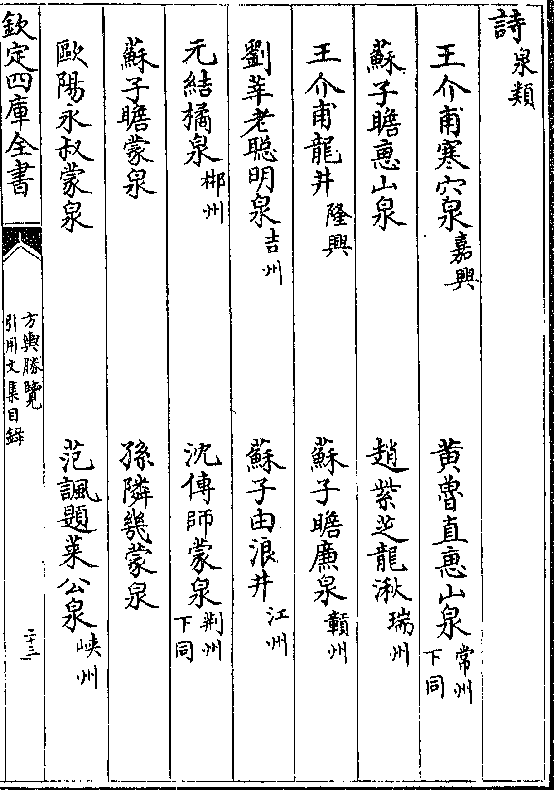 詩泉類
王介甫寒穴泉嘉興　黄魯直惠山泉常州下同
蘇子瞻惠山泉　趙紫芝龍湫瑞州
王介甫龍井隆興　蘇子瞻廉泉贛州
劉莘老聪明泉吉州　蘇子由浪井江州
元結橘泉郴州　沈傳師蒙泉荆州下同
蘇子瞻蒙泉　孫隣幾蒙泉
歐陽永叔蒙泉　范諷題萊公泉峽州
欽定四庫全書　方輿勝覽引用文集目録　二十三